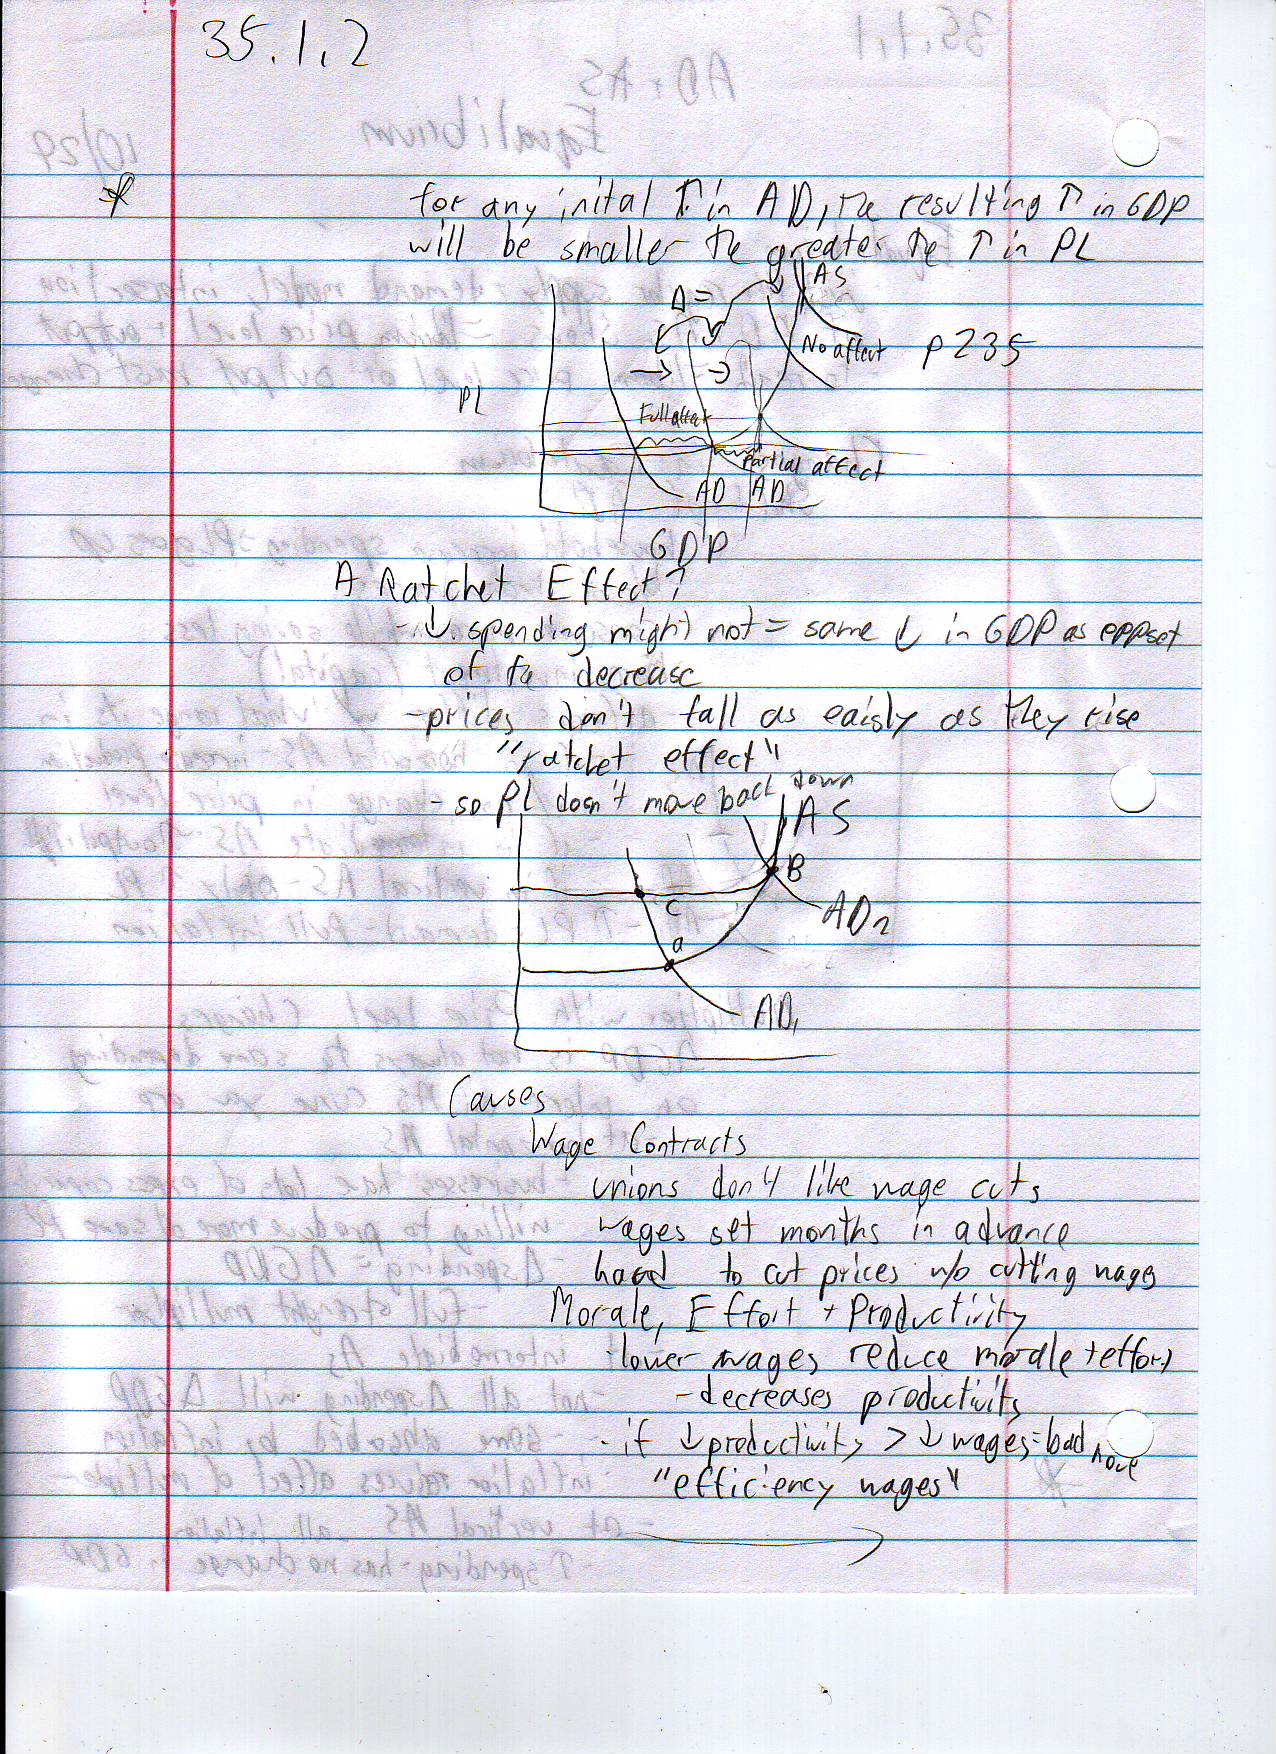 35.1.2
* for any inital ↑ in AD, the resulting ↑ in GDP
will be smaller the greater the ↑ in PL
Δ=
AS
No affect p 235
PL
Full affect
partial affect
AD AD
GDP
A Ratchet Effect?
- ↓ spending might not = same ↓ in GDP as
of the decrease
- prices don't fall as eaisly as they rise
"ratchet effect"
- so PL doesn't move back down
AS
B
c
AD2
a
AD1
Causes
Wage Contracts
unions don't like wage cuts
wages set months in advance
hard to cut prices w/o cutting wages
Morale, Effort + Productivity
- lower wages reduce moralle + effort
- decreases productivity
- if ↓ productivity > ↓ wages = bad move
"efficiency wages"